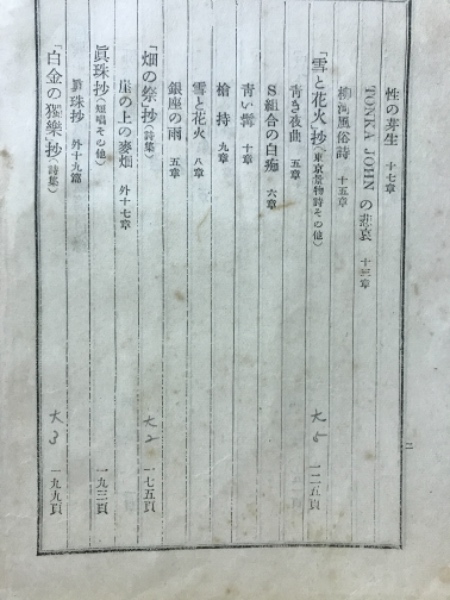 性の芽生 十七章
TONKA JOHN の悲哀 十三章
柳河風俗詩 十五章
「雪と花火抄」(東京景物詩その他) 大5 一二五頁
靑き夜曲 五章
S組合の白痴 六章
靑い髯 十章
槍持 九章
雪と花火 八章
銀座の雨 五章
「畑の祭」抄(詩集) 大2 一七五頁
崖の上の麥畑 外十七章
眞珠抄(短唱その他) 一九三頁
眞珠抄 外十九篇
「白金の獨樂」抄(詩集) 大3 一九九頁
二